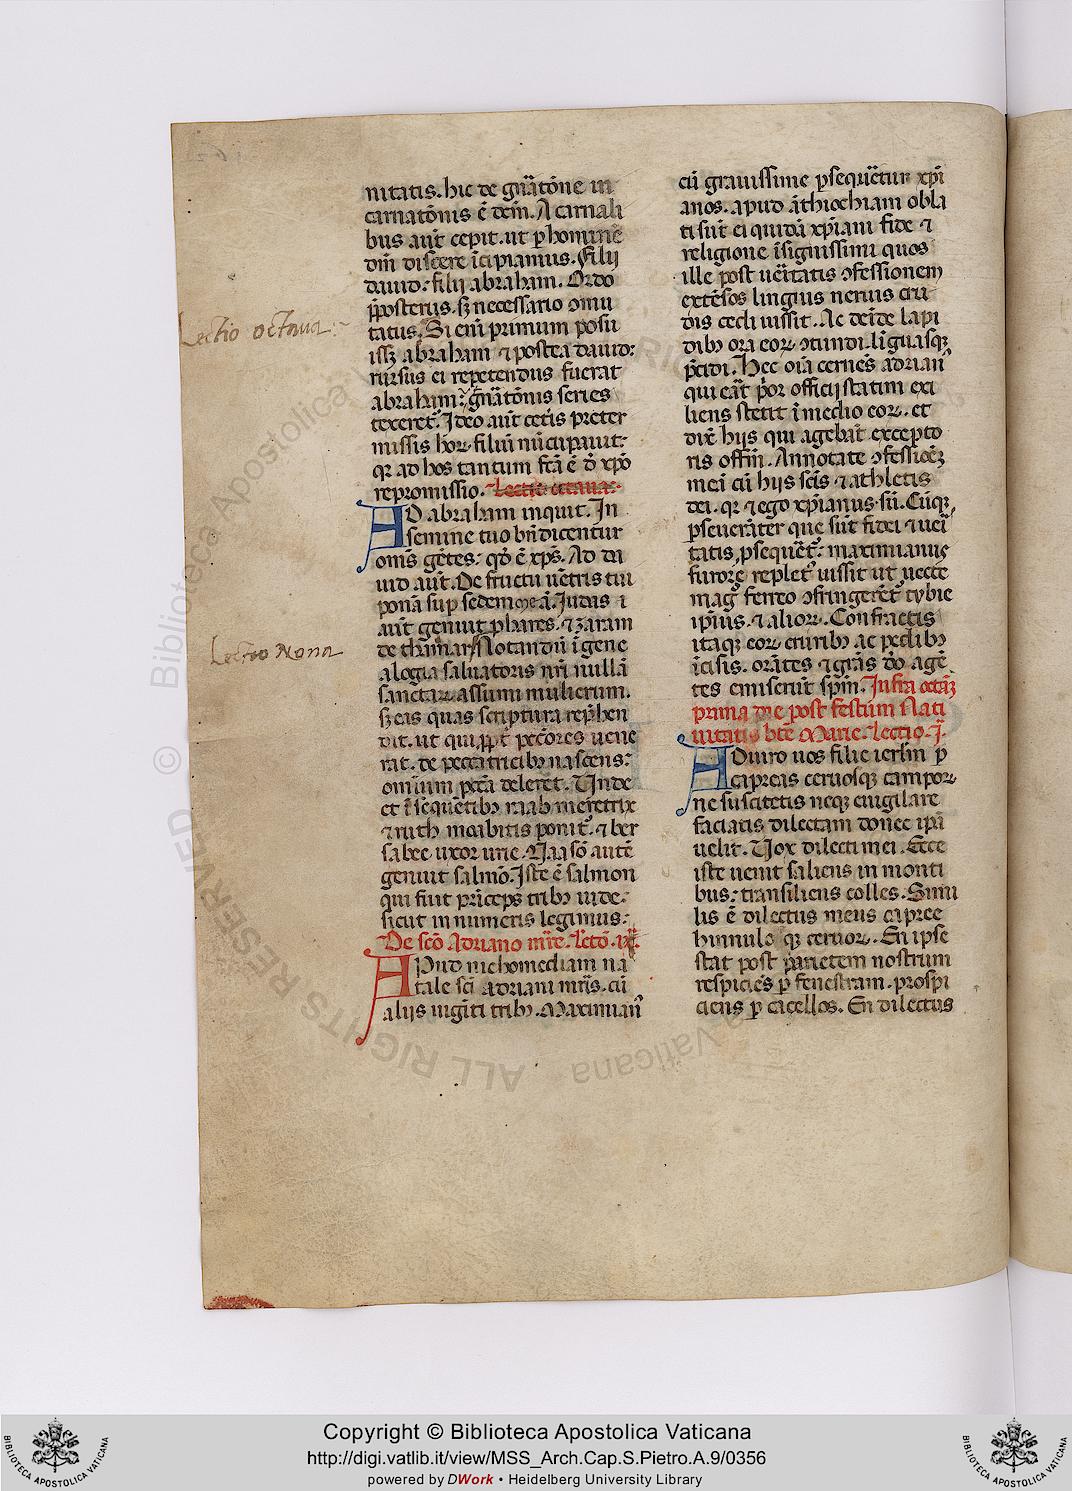 nitatis. hic de gn̄atōne in
carnatōnis ē dcm̄. A carnali
bus aut̄ cepit. ut p hominē
dm̄ discere īcipiamus. Filij
dauid: filij abraham. Ordo
p̄posterus. sꝫ necessario ↄmu
tatus. Si enī primum posu
issꝫ abraham ⁊ postea dauid:
rursus ei repetendus fuerat
abraham: gn̄atōnis series
texeret̄. Ideo aut̄ cet̄is preter
missis hoꝝ filiū nūcupauit:
qꝛ ad hos tantum fc̄a ē d̄ xp̄o
repromissio. Lectio octaua:
AD abraham inquit. In
semine tuo bn̄dicentur
om̄s gētes: qd̄ ē xp̄s. Ad da
uid aut̄. De fructu uētris tui
ponā sup sedem meā. Iudas
aut̄ genuit phares. ⁊ zaram
de thamar Notandū ī gene
alogia saluatoris nr̄i nullā
sanctaꝝ assumi mulierum.
sꝫ eas quas scriptura rep̄hen
dit. ut qui ꝓpt̄ pec̄ores uene
rat. de peccatricibꝫ nascens:
omīum pec̄ta deleret̄. Unde
et ī seq̄uētibꝫ raab meretrix
⁊ ruth moabitis ponit̄. ⁊ ber
sabee uxor urie. Naasō autē
genuit salmō. Iste ē salmon
qui fuit prīceps tribꝫ iude:
sicut in numeris legimus:
De sc̄o Adriano mr̄e. Lect̄o. ix.
APud nichomediam na
tale sc̄i Adriani mr̄is. cū
alijs uigīti tribꝫ. Maximianꝰ
cū grauissime ꝑsequēt̄ur xp̄i
anos. apud āthiochiam obla
ti sūt ei quidā xp̄iani fide ⁊
religione īsignissimi quos
ille post uēritatis ↄfessionem
extēsos linguis neruis cru
dis cedi iussit. Ac deīde lapi
dibꝫ ora eoꝝ ↄtundi. līguasqꝫ
p̄cidi. Hec oīa cernēs adrianꝰ
qui eāt prīor officij statim exi
liens stetit ī medio eoꝝ. et
dix̄ hijs qui agebāt excepto
ris offm̄. Annotate ↄfessiōeꝫ
mei cū hijs sc̄is ⁊ athletis
dei. qꝛ ⁊ ego xp̄ianus sū. Cūqꝫ
ꝑseuerāter que sūt fidei ⁊ ueri
tatis ꝓsequēt̄: maximianus
furore replet̄ iussit ut uecte
mag ferreo ↄfringerēt̄ tybie
ipīus. ⁊ alioꝝ. Confractis
itaqꝫ eoꝝ cruribꝫ ac pedibꝫ
īcisis. orātes ⁊ grās dō agē
tes emiserūt spm̄. Infra octāꝫ
prima die post festum Nati
uitatis bt̄e Marie. Lectio. j.
ADiuro uos filie ierlm̄ p
capreas ceruosqꝫ campoꝝ
ne suscitetis neqꝫ euigilare
faciatis dilectam donec ipā
uelit. Uox dilecti mei. Ecce
iste uenit saliens in monti
bus: transiliens colles. Simi
lis ē dilectus meus capree
hinnulo qꝫ ceruoꝝ. En ipse
stat post parietem nostrum
respiciēs p fenestram. prospi
ciens p cācellos. En dilectus
Lectio octaua
Lectio Nona
© Biblioteca Apostolica Vaticana ALL RIGHTS RESERVED
Copyright © Biblioteca Apostolica Vaticana
http://digi.vatlib.it/view/MSS_Arch.Cap.S.Pietro.A.9/0356
powered by DWork • Heidelberg University Library
BIBLIOTECA APOSTOLICA VATICANA
BIBLIOTECA APOSTOLICA VATICANA